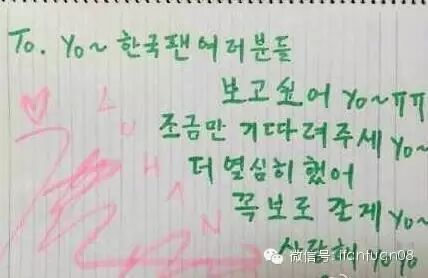 To. yo~ 한국팬 여러분들
보고싶어 yo~ㅠㅠ
조금만 기다려주세 yo~
더 열심히 했어
꼭 보로 갈게 yo~
사랑해 yo~
L U H A N
微信号: ifcnfuqn08